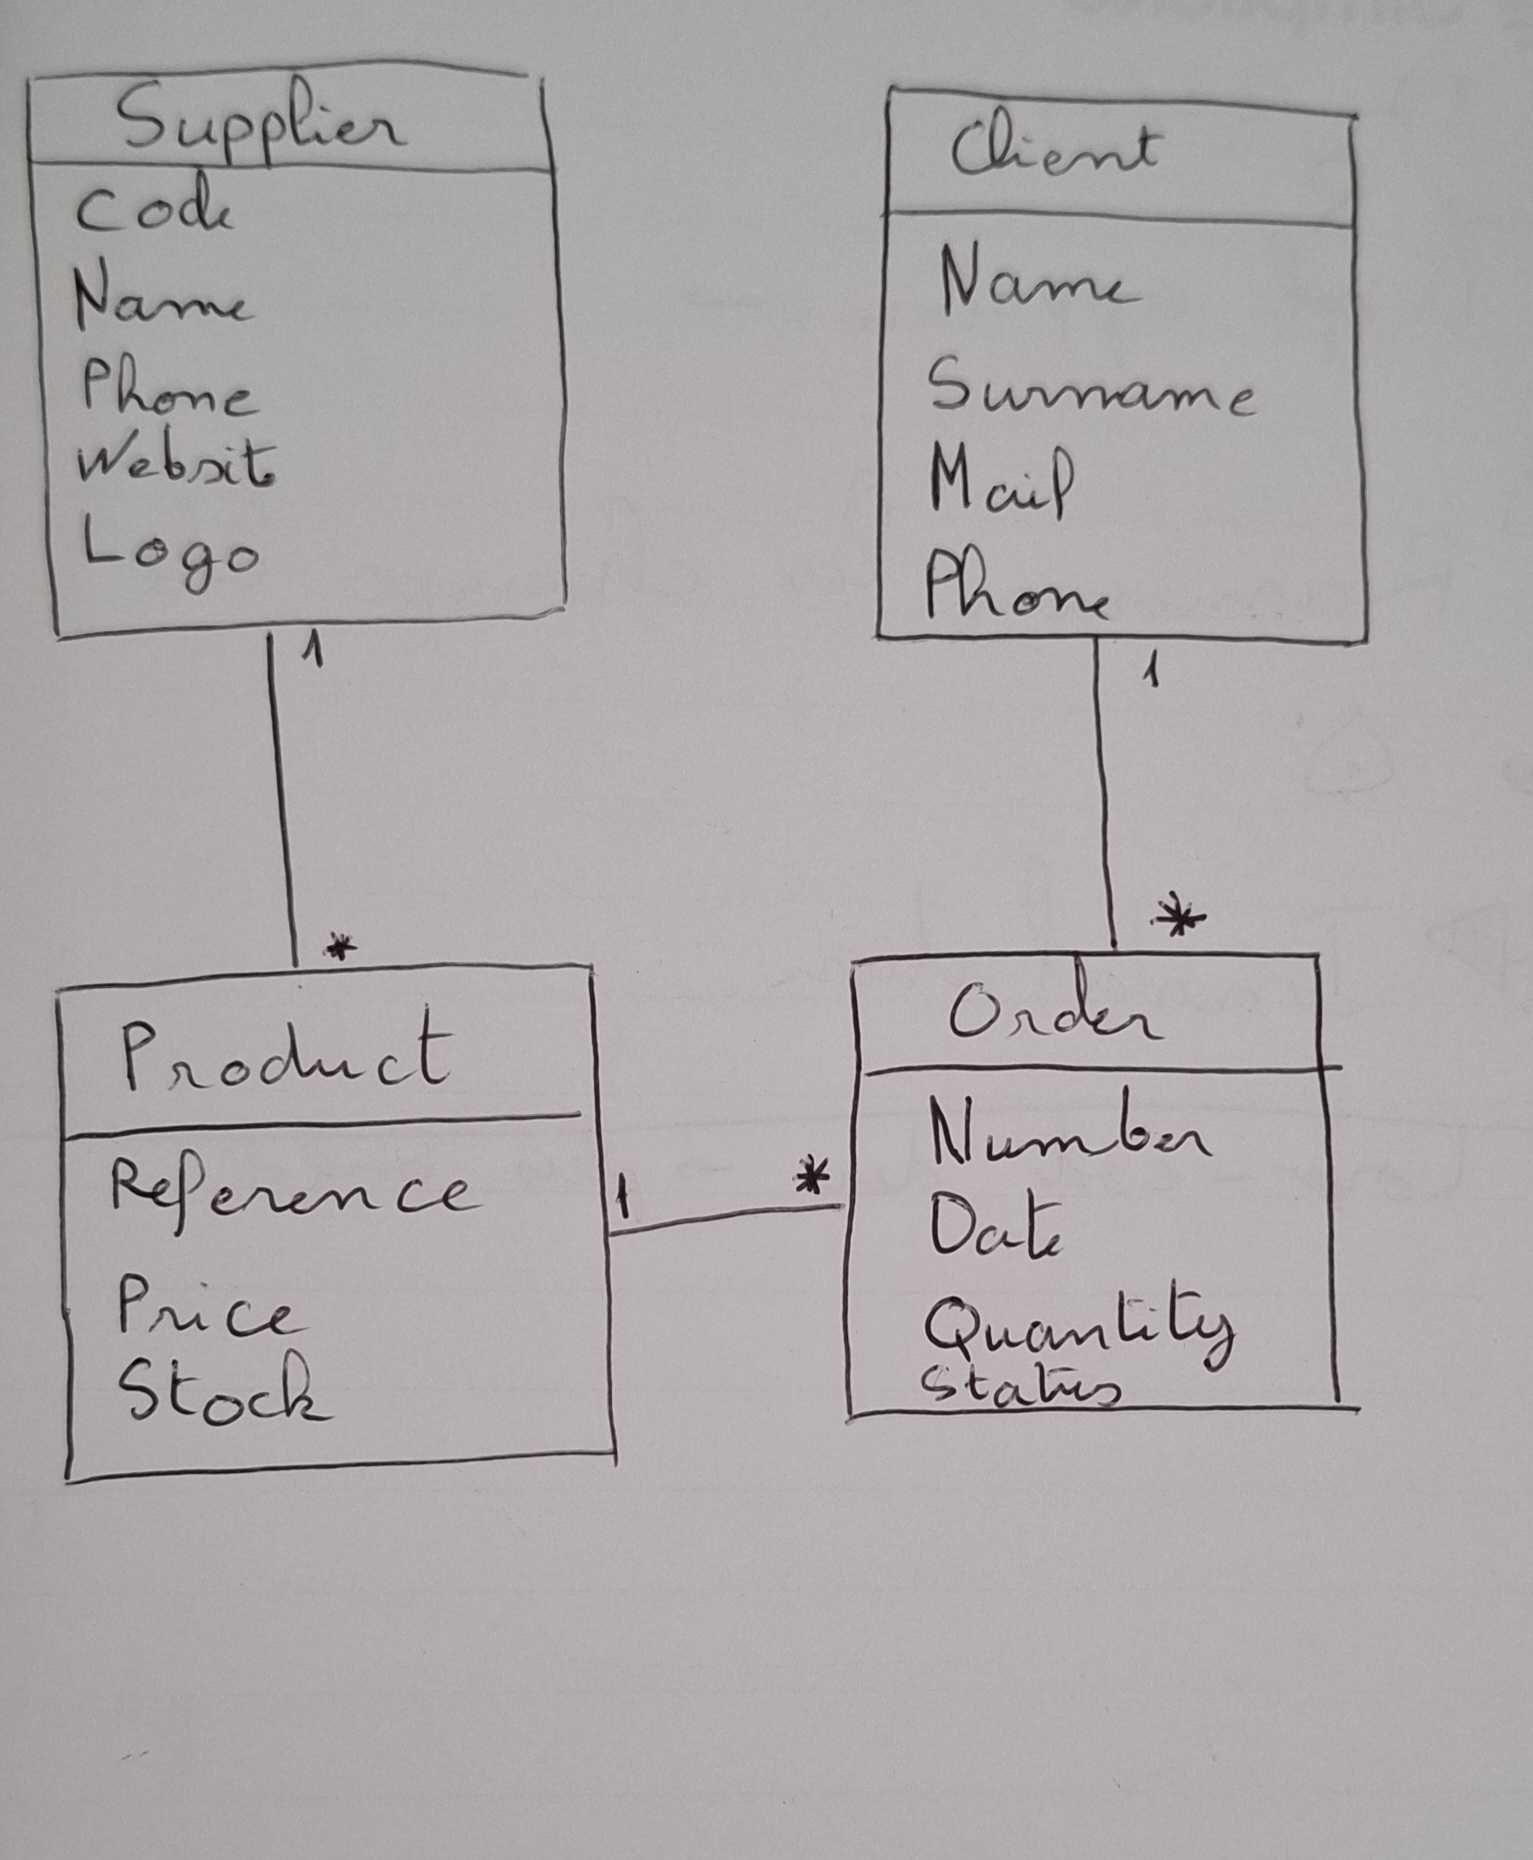 Supplier
Code
Name
Phone
Website
Logo
1
*
Client
Name
Surname
Mail
Phone
1
*
Product
Reference
Price
Stock
1
*
Order
Number
Date
Quantity
Status